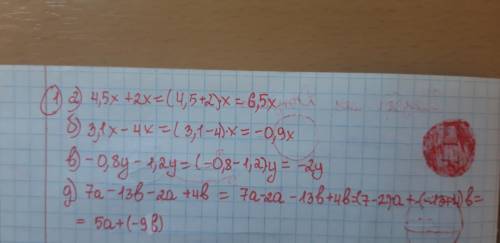 1 а) 4,5x + 2x = (4,5+2)·x = 6,5x
б) 3,1x - 4x = (3,1-4)·x = -0,9x
в) -0,8y - 1,2y = (-0,8-1,2)y = -2y
д) 7a - 13b - 2a + 4b = 7a - 2a - 13b + 4b = (7-2)a + (-13+4)b =
= 5a + (-9b)